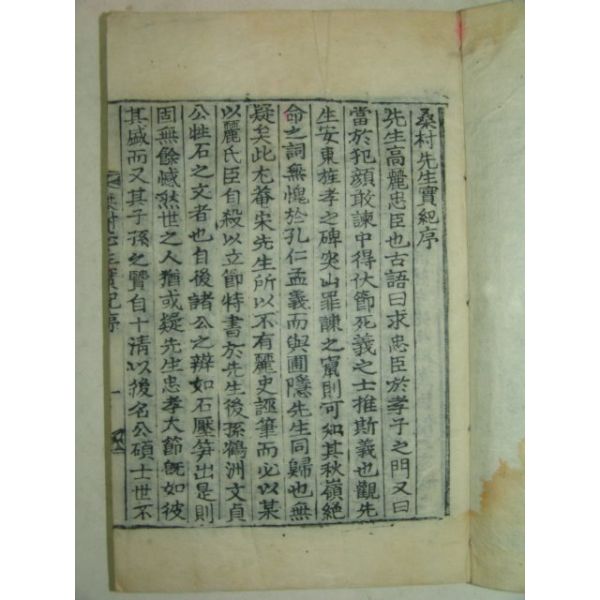 桑村先生實紀序
先生高麗忠臣也古語曰求忠臣於孝子之門又曰
當於犯顔敢諫中得伏節死義之士推斯義也觀先
生安東旌孝之碑突山罪謙之竄則可知其秋嶺絶
命之詞無愧於孔仁孟義而與圃隱先生同歸也無
疑矣此尤菴宋先生所以不有麗史誣筆而必以某
以麗氏臣自殺以立節特書於先生後孫鶴洲文貞
公牲石之文者也自後諸公之辨如石壓笋出是則
固無餘憾然世之人猶或疑先生忠孝大節旣如彼
其盛而又其子孫之賢自十淸以後名公碩士世不
桑村先生實紀序 一